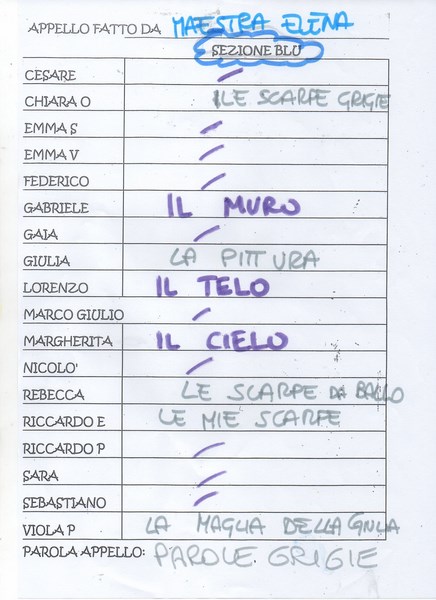 APPELLO FATTO DA MAESTRA ELENA
SEZIONE BLU
CESARE /
CHIARA O LE SCARPE GRIGIE
EMMA S /
EMMA V /
FEDERICO /
GABRIELE IL MURO
GAIA /
GIULIA LA PITTURA
LORENZO IL TELO
MARCO GIULIO /
MARGHERITA IL CIELO
NICOLO' /
REBECCA LE SCARPE DA BALLO
RICCARDO E LE MIE SCARPE
RICCARDO P /
SARA /
SEBASTIANO /
VIOLA P LA MAGLIA DELLA
PAROLA APPELLO: PAROLE GRIGIE